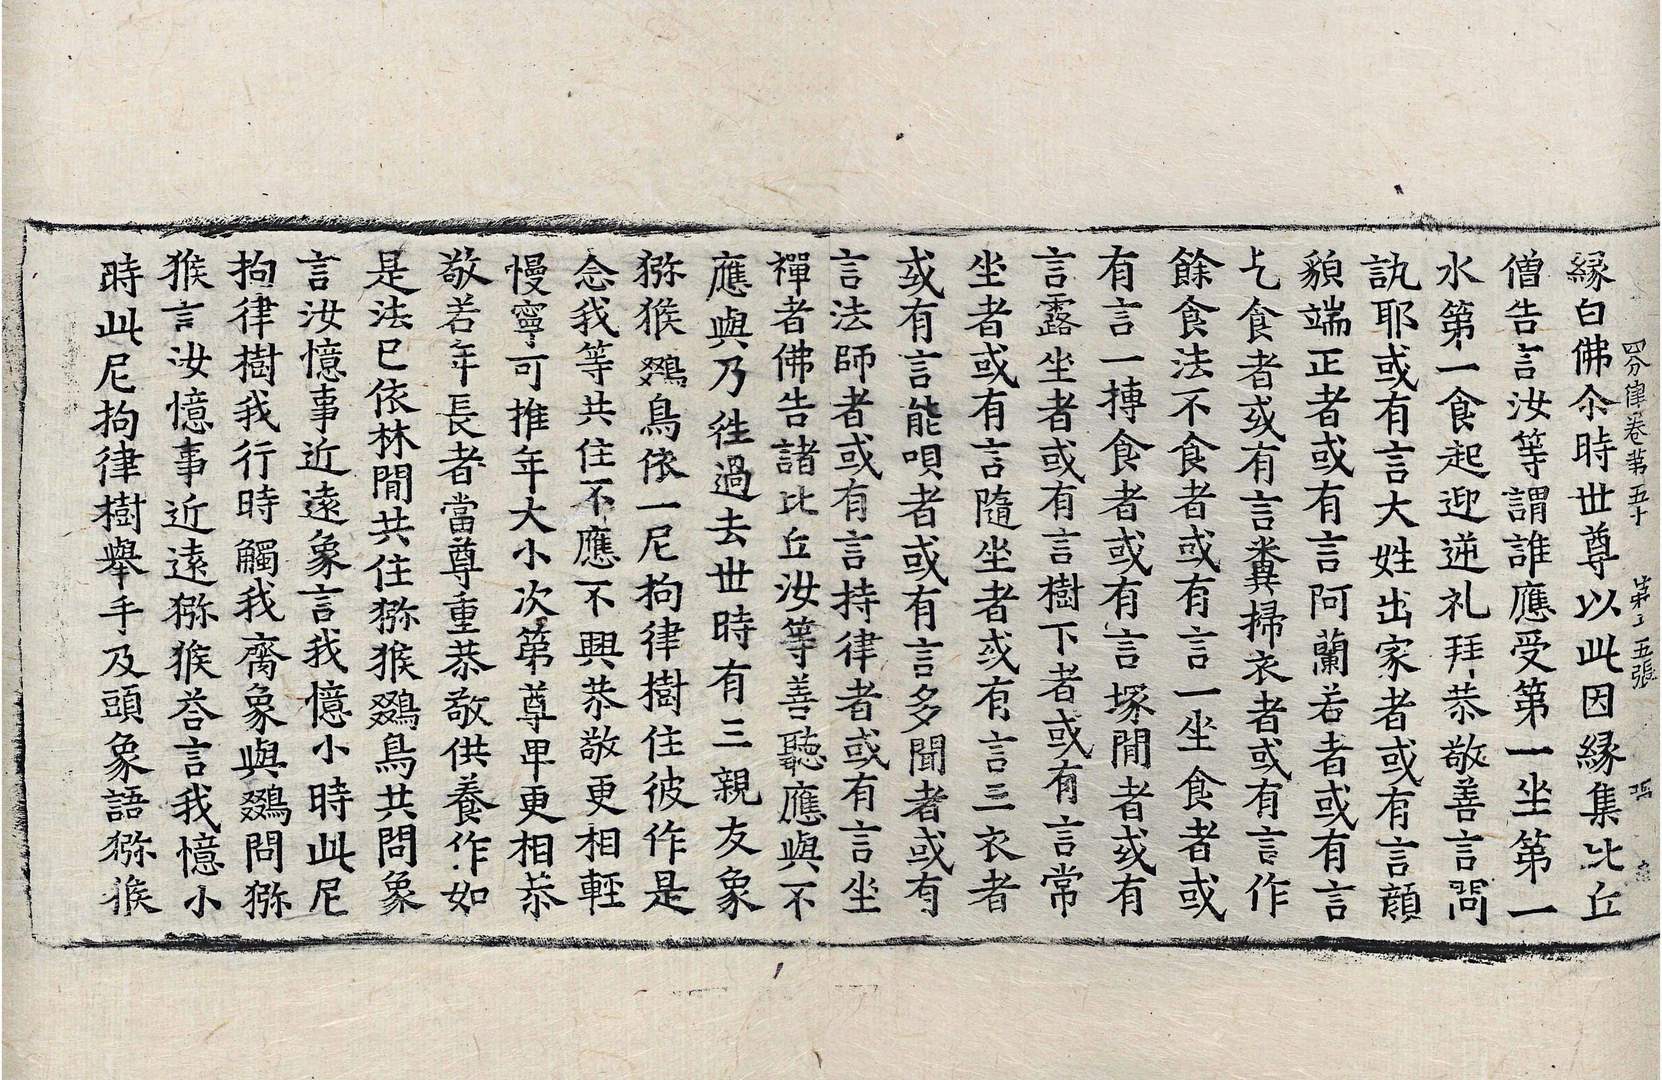 四分律卷第五十　第二五張
縁白佛尒時世尊以此因縁集比丘
僧告言汝等謂誰應受第一坐第一
水第一食起迎逆礼拜恭敬善言問
訊耶或有言大姓出家者或有言顔
貌端正者或有言阿蘭若者或有言
乞食者或有言糞掃衣者或有言作
餘食法不食者或有言一坐食者或
有言一摶食者或有言塚閒者或有
言露坐者或有言樹下者或有言常
坐者或有言隨坐者或有言三衣者
或有言能唄者或有言多聞者或有
言法師者或有言持律者或有言坐
禪者佛告諸比丘汝等善聽應與不
應與乃徃過去世時有三親友象
獼猴鵽鳥依一尼拘律樹住彼作是
念我等共住不應不興恭敬更相輕
慢寧可推年大小次第尊卑更相恭
敬若年長者當尊重恭敬供養作如
是法已依林閒共住獼猴鵽鳥共問象
言汝憶事近遠象言我憶小時此尼
拘律樹我行時觸我齊象與鵽問獼
猴言汝憶事近遠獼猴荅言我憶小
時此尼拘律樹舉手及頭象語獼猴